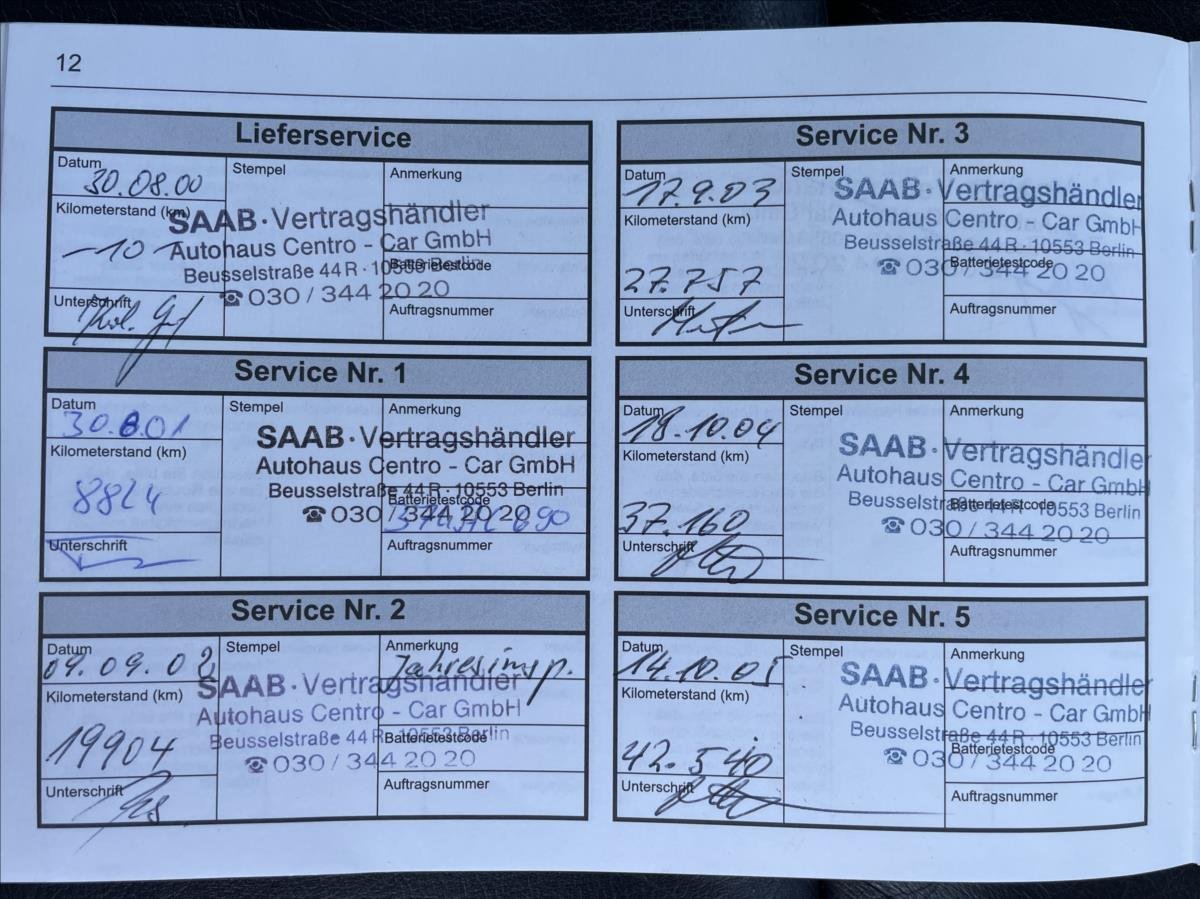 12
Lieferservice
Datum
30.08.00
Stempel
Anmerkung
Kilometerstand (km)
~10
SAAB · Vertragshändler
Autohaus Centro - Car GmbH
Beusselstraße 44 R · 10553 Berlin
Batterietestcode
☎ 030 / 344 20 20
Unterschrift
Auftragsnummer
Service Nr. 1
Datum
30.8.01
Stempel
Anmerkung
Kilometerstand (km)
8824
SAAB · Vertragshändler
Autohaus Centro - Car GmbH
Beusselstraße 44 R · 10553 Berlin
Batterietestcode
☎ 030 / 344 20 20
Unterschrift
Auftragsnummer
Service Nr. 2
Datum
09.09.02
Stempel
Anmerkung
Jahresinsp.
Kilometerstand (km)
19904
SAAB · Vertragshändler
Autohaus Centro - Car GmbH
Beusselstraße 44 R · 10553 Berlin
Batterietestcode
☎ 030 / 344 20 20
Unterschrift
Auftragsnummer
Service Nr. 3
Datum
17.9.03
Stempel
Anmerkung
Kilometerstand (km)
27.757
SAAB · Vertragshändler
Autohaus Centro - Car GmbH
Beusselstraße 44 R · 10553 Berlin
Batterietestcode
☎ 030 / 344 20 20
Unterschrift
Auftragsnummer
Service Nr. 4
Datum
18.10.04
Stempel
Anmerkung
Kilometerstand (km)
37.160
SAAB · Vertragshändler
Autohaus Centro - Car GmbH
Beusselstraße 44 R · 10553 Berlin
Batterietestcode
☎ 030 / 344 20 20
Unterschrift
Auftragsnummer
Service Nr. 5
Datum
14.10.05
Stempel
Anmerkung
Kilometerstand (km)
42.540
SAAB · Vertragshändler
Autohaus Centro - Car GmbH
Beusselstraße 44 R · 10553 Berlin
Batterietestcode
☎ 030 / 344 20 20
Unterschrift
Auftragsnummer